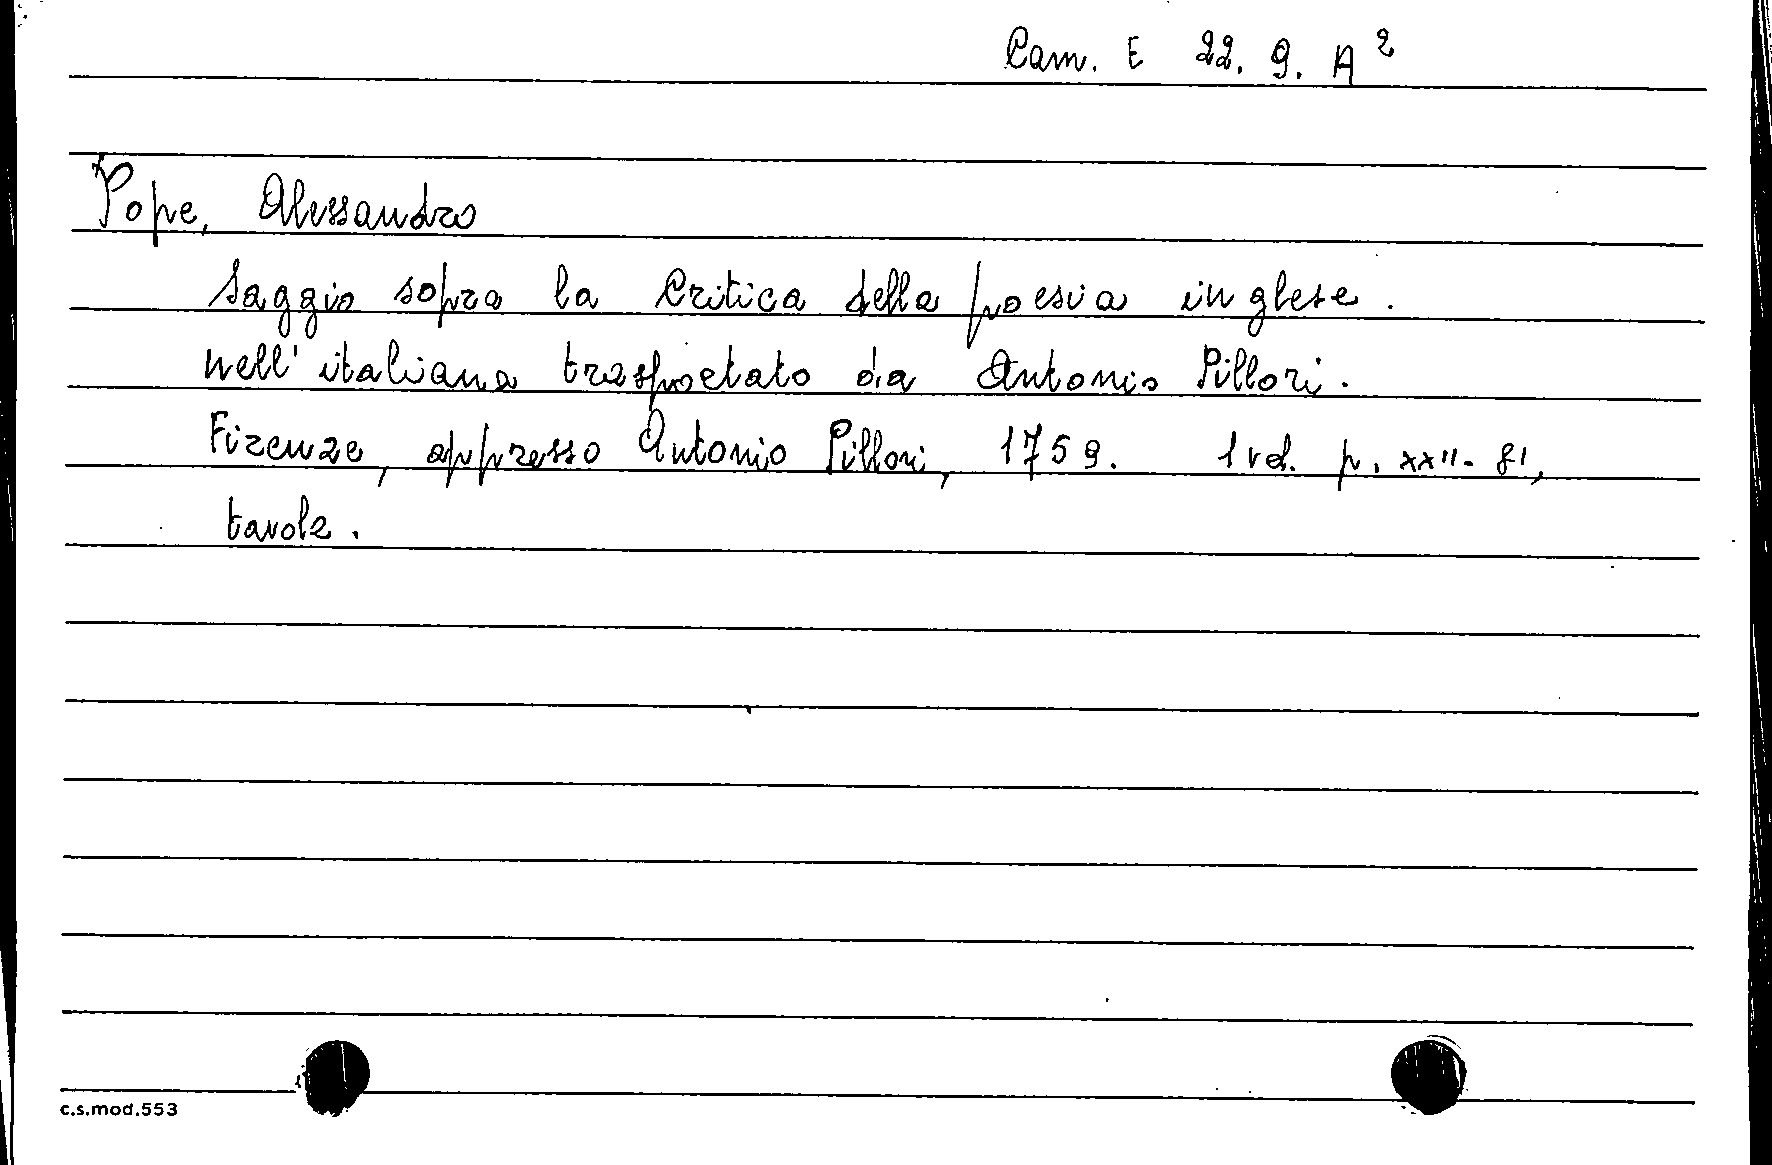 Cam. E 22. 9. A²
Pope, Alessandro
Saggio sopra la Critica della poesia inglese.
Nell' italiana trasportato da Antonio Pillori.
Firenze, appresso Antonio Pillori, 1759. 1 vol. p. XXII-81,
tavole.
c.s.mod.553